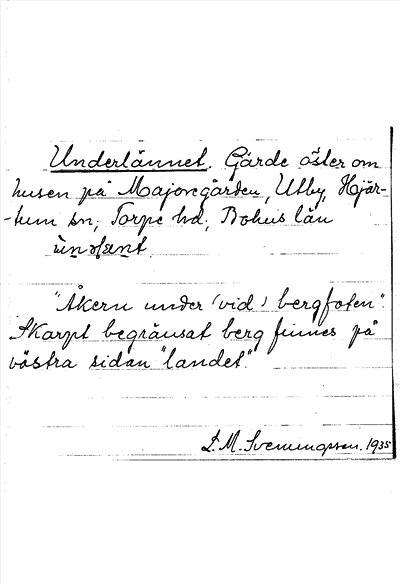 Underlännet. Gärde öster om
husen på Majoregården, Utby, Hjär-
-tum sn, Torpe hd, Bohus län

"Åkern under (vid) bergfoten".
Skarpt begränsat berg finnes på
västra sidan "landet".
S. M. Svenungsson. 1935